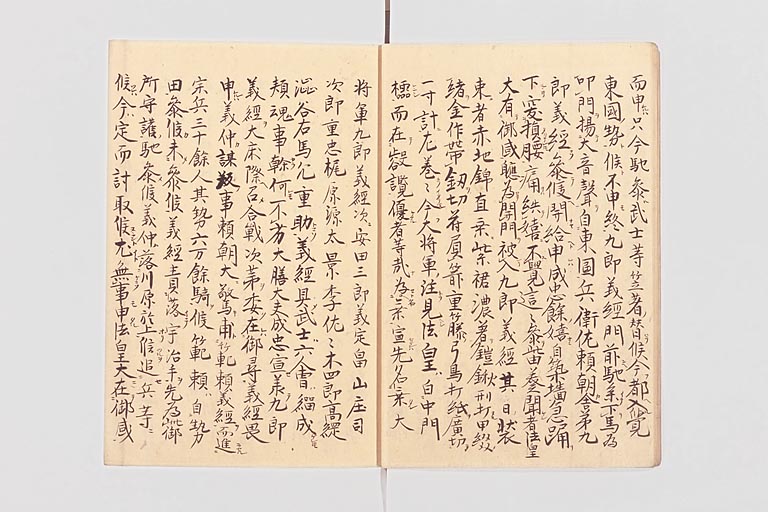 而申只今馳参武士等笠著替候今都入覚
東國勢候不申終九郎義經門前馳系下馬為
叩門揚大音聲自東国兵衛佐頼朝舎弟九
郎義經参候開給申成忠餘嬉自築墻急踊
下突損腰痛然嬉不覚這参苗奏聞者法皇
大有御感聴為開門被入九郎義經其日装
束者赤地錦直垂紫裙濃著鎧鍬形打甲緩
緒金作帯釼切符負箭重籐弓鳥打紙廣切
一寸計左巻々今大将軍注見法皇自中門
櫺而在叡覧優者等哉為系宣先名系大
将軍九郎義經次安田三郎義定畠山庄司
次郎重忠梶原源太景季佐々木四郎高綱
澁谷右馬允重助義經具武士六人會縚成
頬魂事幹何不劣大膳大夫成忠宣義九郎
義經大床際召合戰次第委在御尋義經畏
申義仲謀叛事頼朝大驚甫範頼義經而進
宗兵三十餘人其勢六万餘騎候範頼自勢
田参候未参候義經責落宇治手先為此御
所守護馳参候義仲落川原於上候追兵等
候今定而討取候尤無事申法皇大在御感